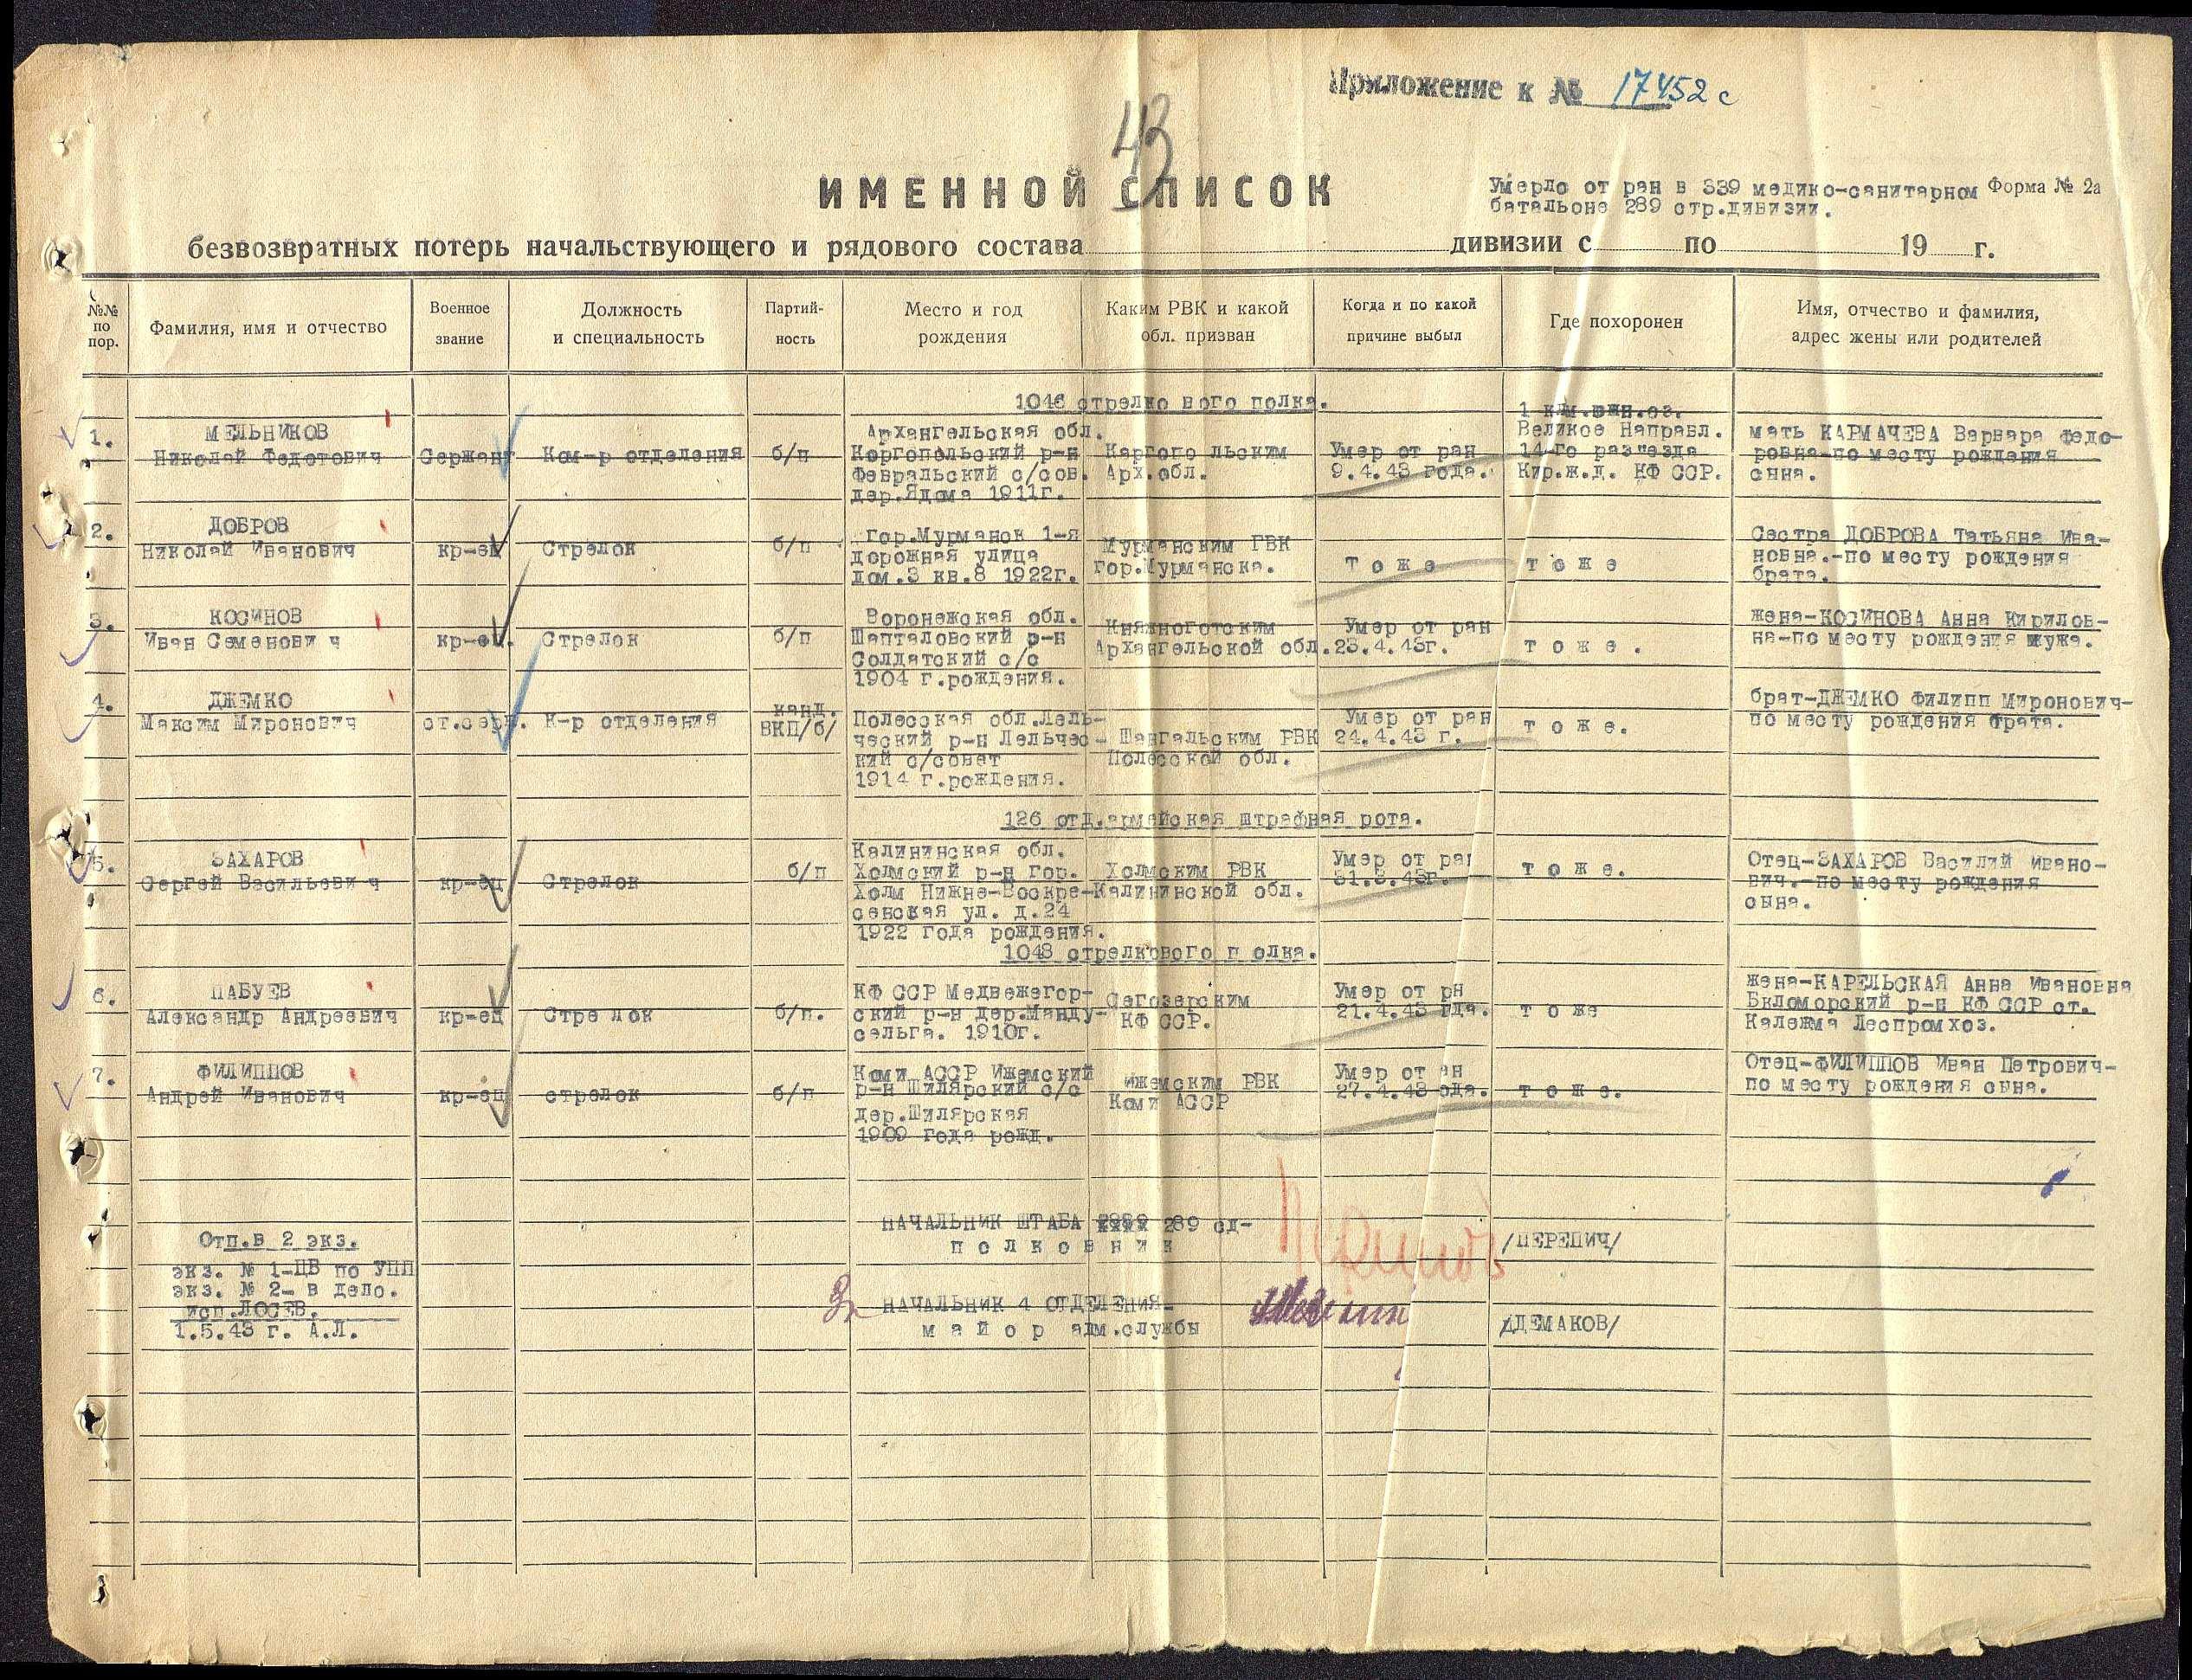 Приложение к № 17452с
43
ИМЕННОЙ СПИСОК
Умерло от ран в 339 медико-санитарном
батальоне 289 стр.дивизии.
Форма № 2а
безвозвратных потерь начальствующего и рядового состава дивизии с по 19 г.
№№ по пор.
Фамилия, имя и отчество
Военное звание
Должность и специальность
Партий-
ность
Место и год рождения
Каким РВК и какой обл. призван
Когда и по какой причине выбыл
Где похоронен
Имя, отчество и фамилия,
адрес жены или родителей
1046 стрелко вого полка.
1.
МЕЛЬНИКОВ
Николай Федотович
Сержант
Ком-р отделения
б/п
Архангельская обл.
Коргопольский р-н
Февральский с/сов.
дер.Ядома 1911г.
Каргопо льским
Арх.обл.
Умер от ран
9.4.43 года.
1 клм.южн.оз.
Великое Направл.
14-го раз"езда
Кир.ж.д. КФ ССР.
мать КАРМАЧЕВА Варвара Федо-
ровна-по месту рождения
сына.
2.
ДОБРОВ
Николай Иванович
кр-ец
Стрелок
б/п
гор.Мурманск 1-я
дорожная улица
дом.3 кв.8 1922г.
Мурманским ГВК
гор.Мурманска.
т о ж е
т о ж е
Сестра ДОБРОВА Татьяна Ива-
новна.-по месту рождения
брата.
3.
КОСИНОВ
Иван Семенови ч
кр-ец.
Стрелок
б/п
Воронежская обл.
Шапталовский р-н
Солдатский с/с
1904 г.рождения.
Княжноготским
Архангельской обл.
Умер от ран
23.4.43г.
т о ж е .
жена-КОСИНОВА Анна Кирилов-
на-по месту рождения мужа.
4.
ДЖЕМКО
Максим Миронович
ст.серж.
К-р отделения
канд.
ВКП/б/
Полесская обл.Лель-
ческий р-н Лельчес-
кий с/совет
1914 г.рождения.
Шангальским РВК
Полесской обл.
Умер от ран
24.4.43 г.
т о ж е.
брат-ДЖЕМКО Филипп Миронович-
по месту рождения брата.
126 отд.армейская штрафная рота.
5.
ЗАХАРОВ
Сергей Васильеви ч
кр-ец
Стрелок
б/п
Калининская обл.
Холмский р-н гор.
Холм Нижне-Воскре-
сенская ул. д.24
1922 года рождения.
Холмским РВК
Калининской обл.
Умер от ран
31.3.43г.
т о ж е.
Отец-ЗАХАРОВ Василий Ивано-
вич.-по месту рождения
сына.
1048 стрелкового п олка.
6.
ПАБУЕВ
Александр Андреевич
кр-ец
Стре лок
б/п.
КФ ССР Медвежегор-
ский р-н дер.Манду-
сельга. 1910г.
Сегозерским
КФ ССР.
Умер от рн
21.4.43 гда.
т о же
жена-КАРЕЛЬСКАЯ Анна Ивановна
Бкломорский р-н КФ ССР ст.
Калежма Леспромхоз.
7.
ФИЛИППОВ
Андрей Иванович
кр-ец
стрелок
б/п
Коми АССР Ижемский
р-н Шилярский с/с
дер.Шилярская
1909 года рожд.
Ижемским РВК
Коми АССР
Умер от ан
27.4.43 ода.
т о ж е.
Отец-ФИЛИППОВ Иван Петрович-
по месту рождения сына.
НАЧАЛЬНИК ШТАБА 289 сд-
п о л к о в н и к
/ПЕРЕПИЧ/
НАЧАЛЬНИК 4 ОТДЕЛЕНИЯ-
м а й о р адм.службы
/ДЕМАКОВ/
Отп.в 2 экз.
экз. № 1-ЦБ по УПП
экз. № 2- в дело.
исп.ЛОСЕВ.
1.5.43 г. А.Л.